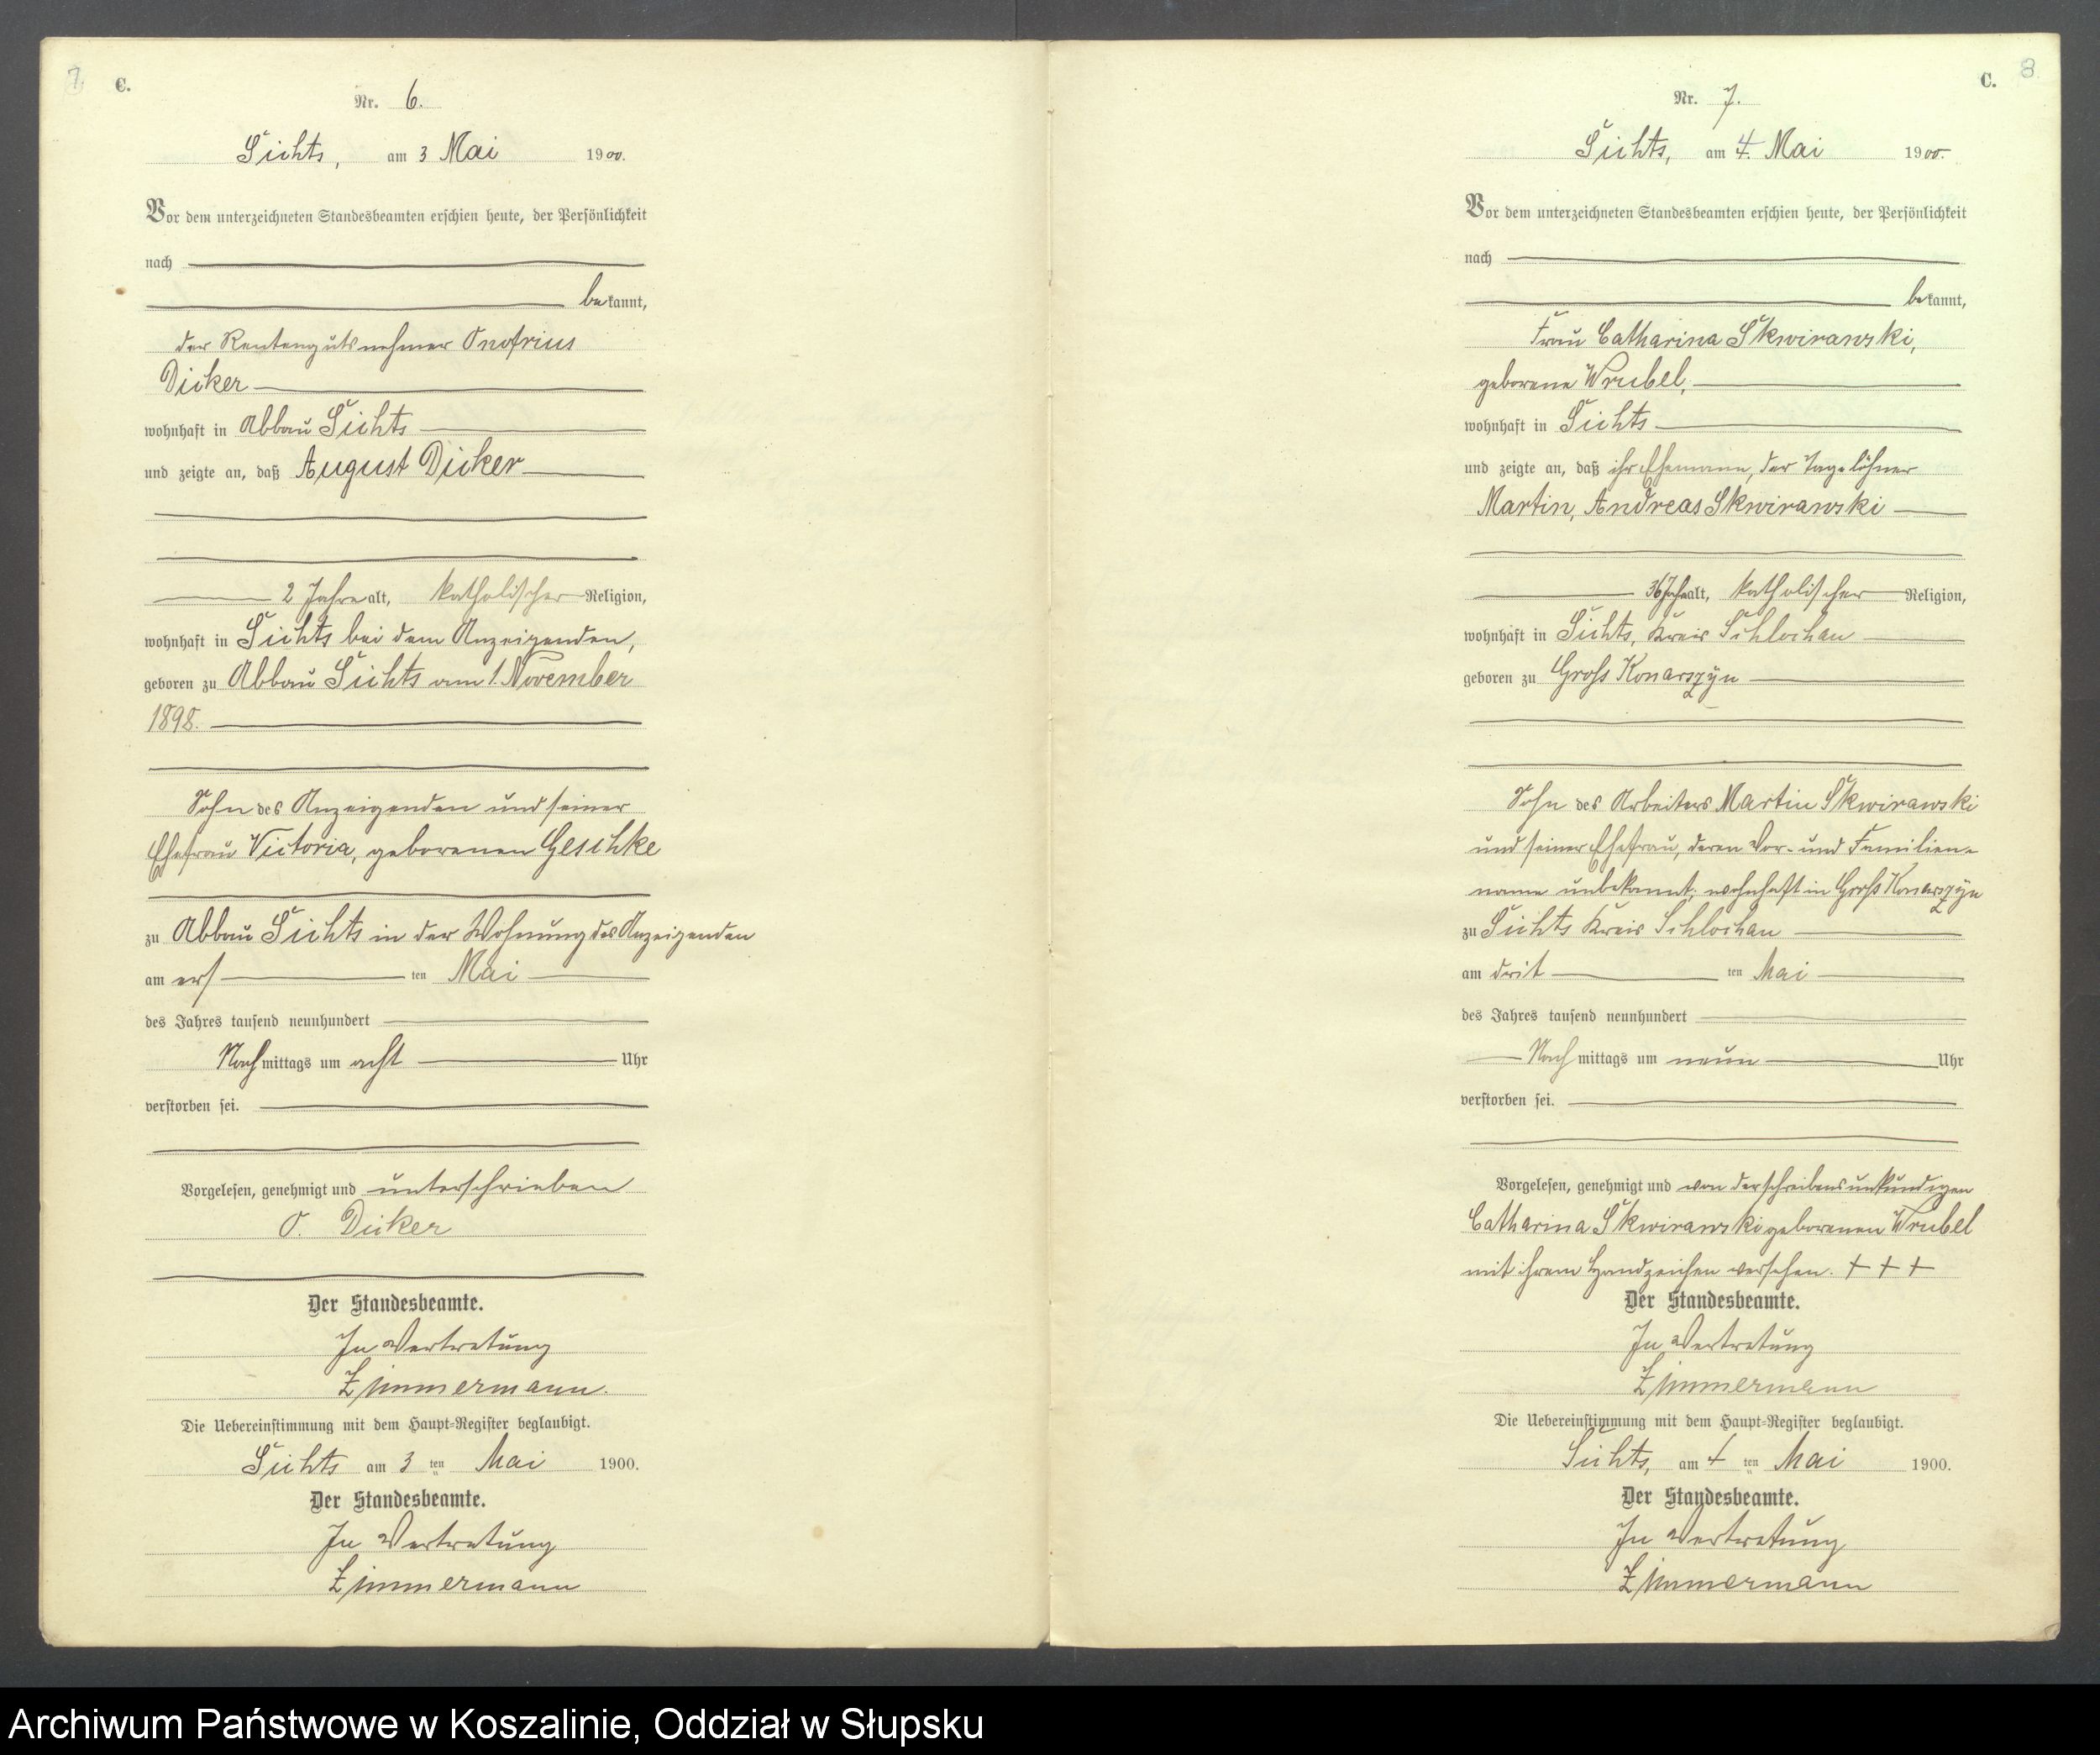 7.
C.
Nr. 6.
Sichts, am 3 Mai 1900.
Vor dem unterzeichneten Standesbeamten erschien heute, der Persönlichkeit
nach
bekannt,
der Rentengutsnehmer Onofrius
Dicker
wohnhaft in Abbau Sichts
und zeigte an, daß August Dicker
2 Jahre alt, katholischer Religion,
wohnhaft in Sichts bei dem Anzeigenden,
geboren zu Abbau Sichts am 1. November
1898.
Sohn des Anzeigenden und seiner
Ehefrau Victoria, geborenen Geschke
zu Abbau Sichts in der Wohnung des Anzeigenden
am ers ten Mai
des Jahres tausend neunhundert
Nachmittags um acht Uhr
verstorben sei.
Vorgelesen, genehmigt und unterschrieben
O. Dicker
Der Standesbeamte.
In Vertretung
Zimmermann.
Die Uebereinstimmung mit dem Haupt-Register beglaubigt.
Sichts am 3 ten Mai 1900.
Der Standesbeamte.
In Vertretung
Zimmermann
8
C.
Nr. 7.
Sichts, am 4. Mai 1900.
Vor dem unterzeichneten Standesbeamten erschien heute, der Persönlichkeit
nach
bekannt,
Frau Catharina Skwirawski,
geborene Wrubel,
wohnhaft in Sichts
und zeigte an, daß ihr Ehemann, der Tagelöhner
Martin, Andreas Skwirawski
36 Jahre alt, katholischer Religion,
wohnhaft in Sichts, Kreis Schlochau
geboren zu Groß Konarszyn
Sohn des Arbeiters Martin Skwirawski
und seiner Ehefrau, deren Vor- und Familien-
name unbekannt, wohnhaft in Groß Konarszyn
zu Sichts Kreis Schlochau
am drit ten Mai
des Jahres tausend neunhundert
Nachmittags um neun Uhr
verstorben sei.
Vorgelesen, genehmigt und von der schreibensunkundigen
Catharina Skwirawski geborenen Wrubel
mit ihrem Handzeichen versehen. + + +
Der Standesbeamte.
In Vertretung
Zimmermann
Die Uebereinstimmung mit dem Haupt-Register beglaubigt.
Sichts, am 4 ten Mai 1900.
Der Standesbeamte.
In Vertretung
Zimmermann
Archiwum Państwowe w Koszalinie, Oddział w Słupsku